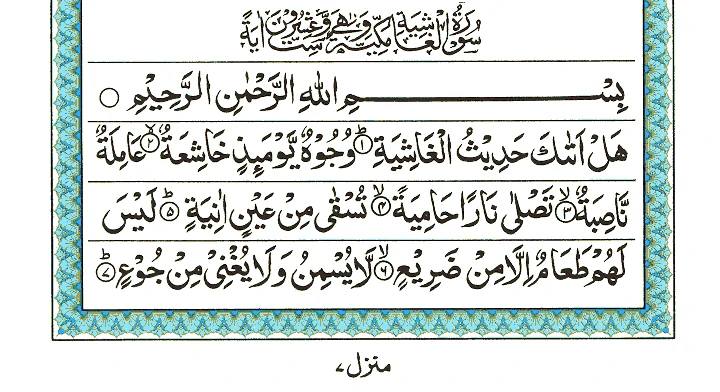 سُوْرَةُ الْغَاشِيَةِ مَكِّيَّةٌ وَّهِيَ سِتٌّ وَّعِشْرُوْنَ اٰيَةً
بِسْمِ اللّٰهِ الرَّحْمٰنِ الرَّحِيْمِ
هَلْ اَتٰىكَ حَدِيْثُ الْغَاشِيَةِ ؕ﴿۱﴾ وُجُوْهٌ يَّوْمَىِٕذٍ خَاشِعَةٌ ۙ﴿۲﴾ عَامِلَةٌ
نَّاصِبَةٌ ۙ﴿۳﴾ تَصْلٰى نَارًا حَامِيَةً ۙ﴿۴﴾ تُسْقٰى مِنْ عَيْنٍ اٰنِيَةٍ ؕ﴿۵﴾ لَيْسَ
لَهُمْ طَعَامٌ اِلَّا مِنْ ضَرِيْعٍ ۙ﴿۶﴾ لَّا يُسْمِنُ وَلَا يُغْنِىْ مِنْ جُوْعٍ ؕ﴿۷﴾
منزل ۷